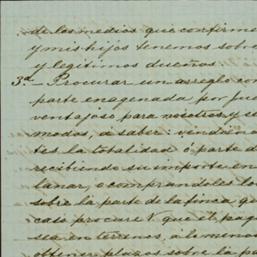 de los medios que confirme
y mis hijos tenemos sobre
y legitimos dueños.
3ª - Procurar un arreglo con
parte enagenada por
ventajoso, para nosotros y se
modos, á saber: vendien
tes la totalidad ó parte d
recibiendo su importe en
lanar, o comprandoles lo
sobre la parte de la finca q
caso procure V. que el pag
sea en terreno, a lo menos
obtener plazos sobre la pa